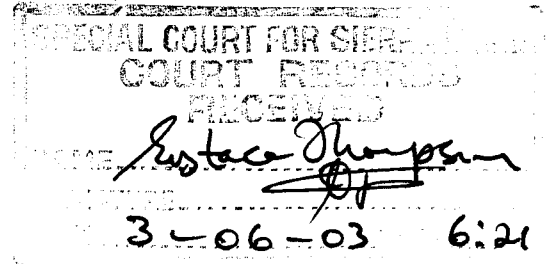 SPECIAL COURT FOR SIERRA
COURT RECORDS
RECEIVED
NAME Eustace Thompson
3-06-03 6:21